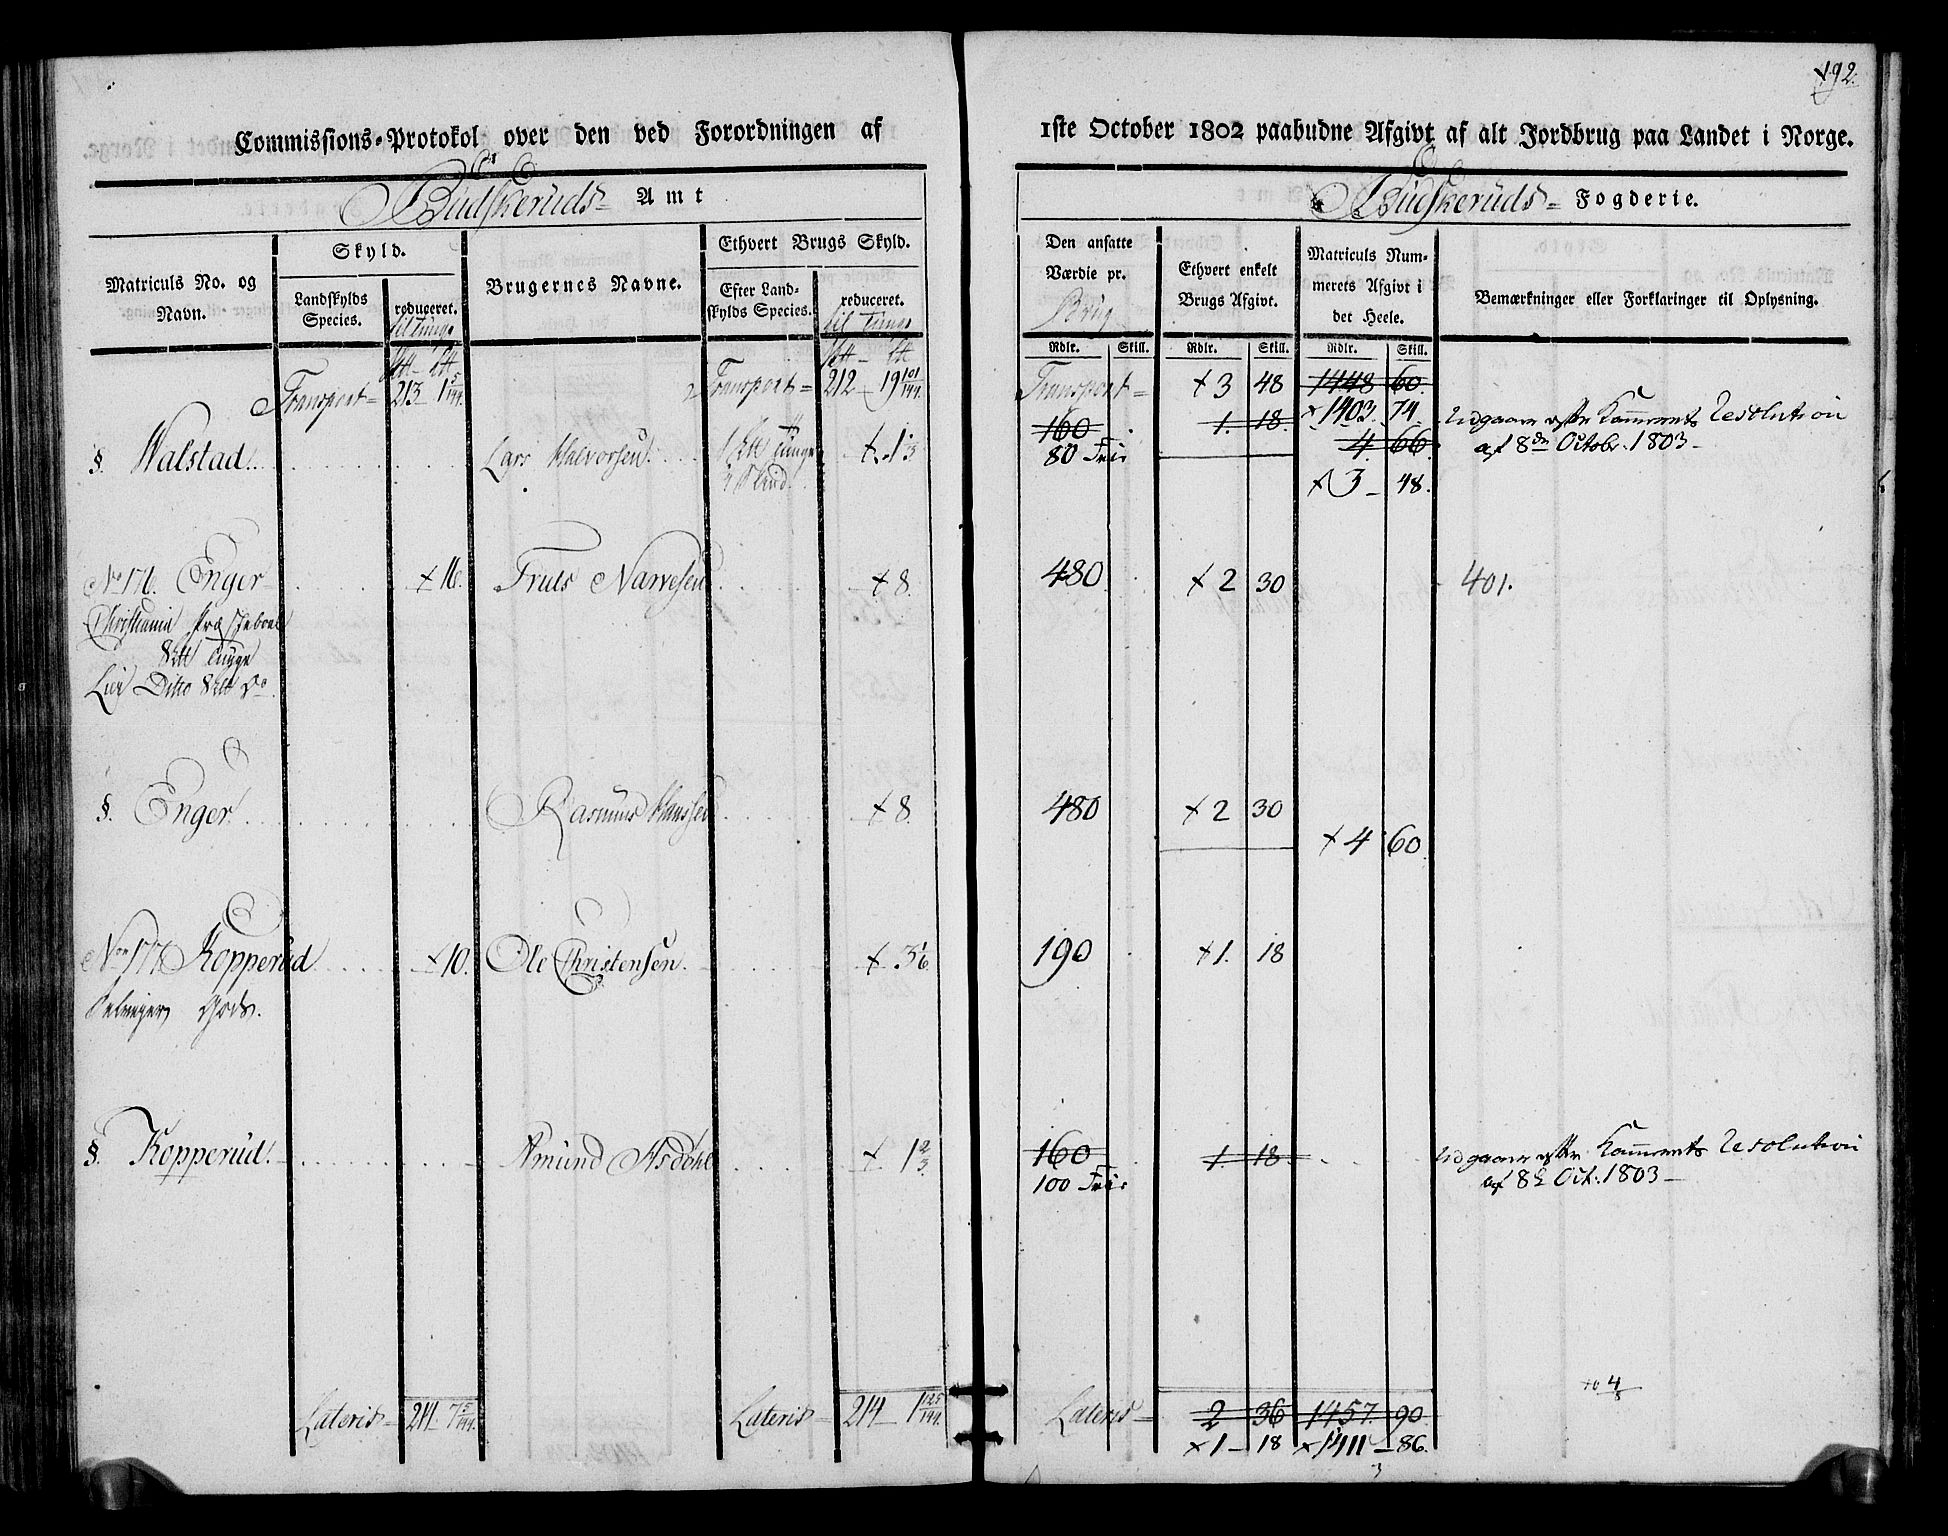 192.
Commissions-Protokol over den ved Forordningen af 1ste October 1802 paabudne Afgivt af alt Jordbrug paa Landet i Norge.
Buskeruds Amt
Buskeruds Fogderie.
Matriculs No. og Navn.
Skyld.
Landskylds Species.
reduceret.
til Tunge
Brugernes Navne.
Ethvert Brugs Skyld.
Efter Landskylds Species.
reduceret.
til Tunge
Den ansatte Værdie pr. Brug
Ethvert enkelt Brugs Afgivt.
Matriculs Nummerets Afgivt i det Heele.
Bemærkninger eller Forklaringer til Oplysning.
Rdlr. Skill. Rdlr. Skill. Rdlr. Skill.
Transport 213 1 5/144 Transport 212 19 101/144 Transport 3 48 1448 60
1403 74
§. Walstad Lars Halvorsen 1 tunge 1 3 160 1. 18. 4. 66. Udgaaer efter Kammerets Resolution
80 Frie af 8de Octobr. 1803
3 48.
No 176. Enger 16. Truls Narvesen 8. 480 2 30 401.
Christiania Præstebord
8 Tunge
Lier Ditto 8 Do
§. Enger Rasmus Hanssen 8. 480 2 30
4 60
No 177 Kopperud 10. Ole Christensen 3 1/6 190 1. 18
Gods.
§. Kopperud Amund Asdøhl 1 2/3 160 1. 18. Udgaaer efter Kammerets Resolution
100 Frie af 8de Oct. 1803
Lateris 214 7 5/144 Lateris 214 1 125/144 Lateris 2 36 1457 90
1 18 1411 86.